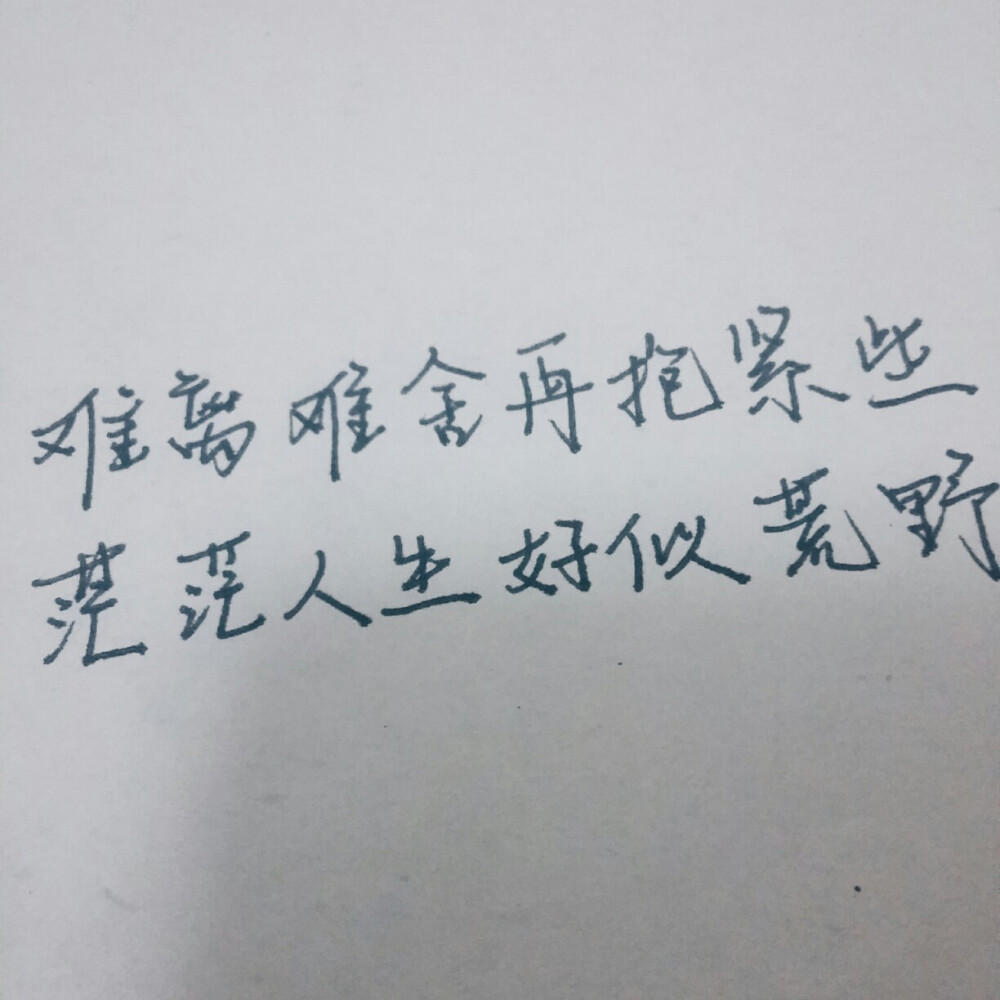 难离难舍再抱紧些
茫茫人生好似荒野